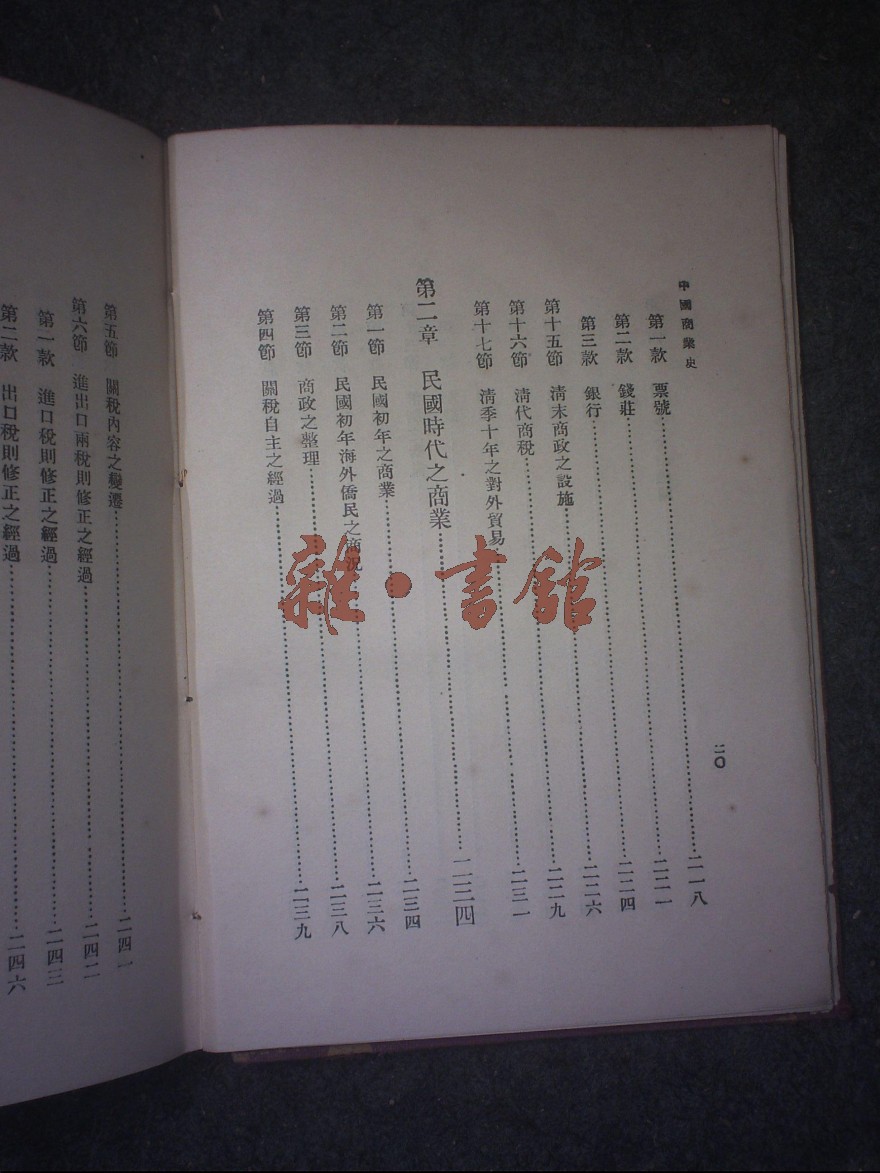 中國商業史
二〇
第一款 票號……二一八
第二款 錢莊……二二一
第三款 銀行……二二四
第十五節 清末商政之設施……二二六
第十六節 清代商稅……二二九
第十七節 清季十年之對外貿易……二三一
第二章 民國時代之商業……二三四
第一節 民國初年之商業……二三四
第二節 民國初年海外僑民之商況……二三六
第三節 商政之整理……二三八
第四節 關稅自主之經過……二三九
第五節 關稅內容之變遷……二四一
第六節 進出口兩稅則修正之經過……二四二
第一款 進口稅則修正之經過……二四三
第二款 出口稅則修正之經過……二四六
雜·書館